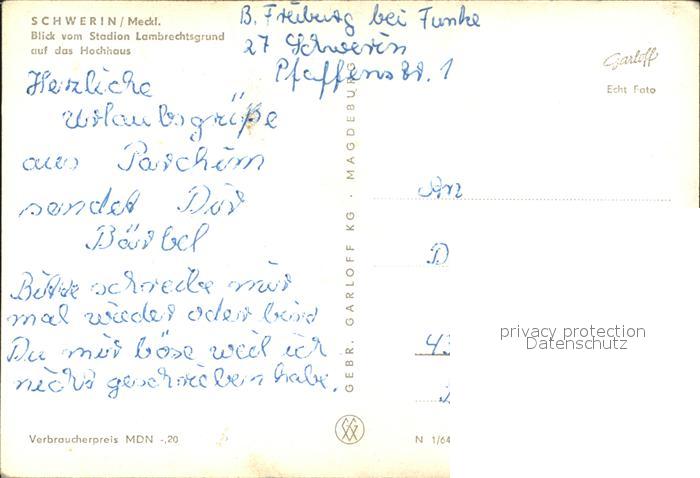 SCHWERIN / Meckl.
Blick vom Stadion Lambrechtsgrund
auf das Hochhaus
B. Freiburg bei Funke
27 Schwerin
Pfaffenstr. 1
Herzliche
Urlaubsgrüße
aus Parchim
sendet Dir
Bärbel
Bitte schreibe mir
mal wieder oder bist
Du mir böse weil ich
nicht geschrieben habe.
Verbraucherpreis MDN -,20
GEBR. GARLOFF KG · MAGDEBURG
Garloff
Echt Foto
An
D
43
N 1/64
privacy protection
Datenschutz